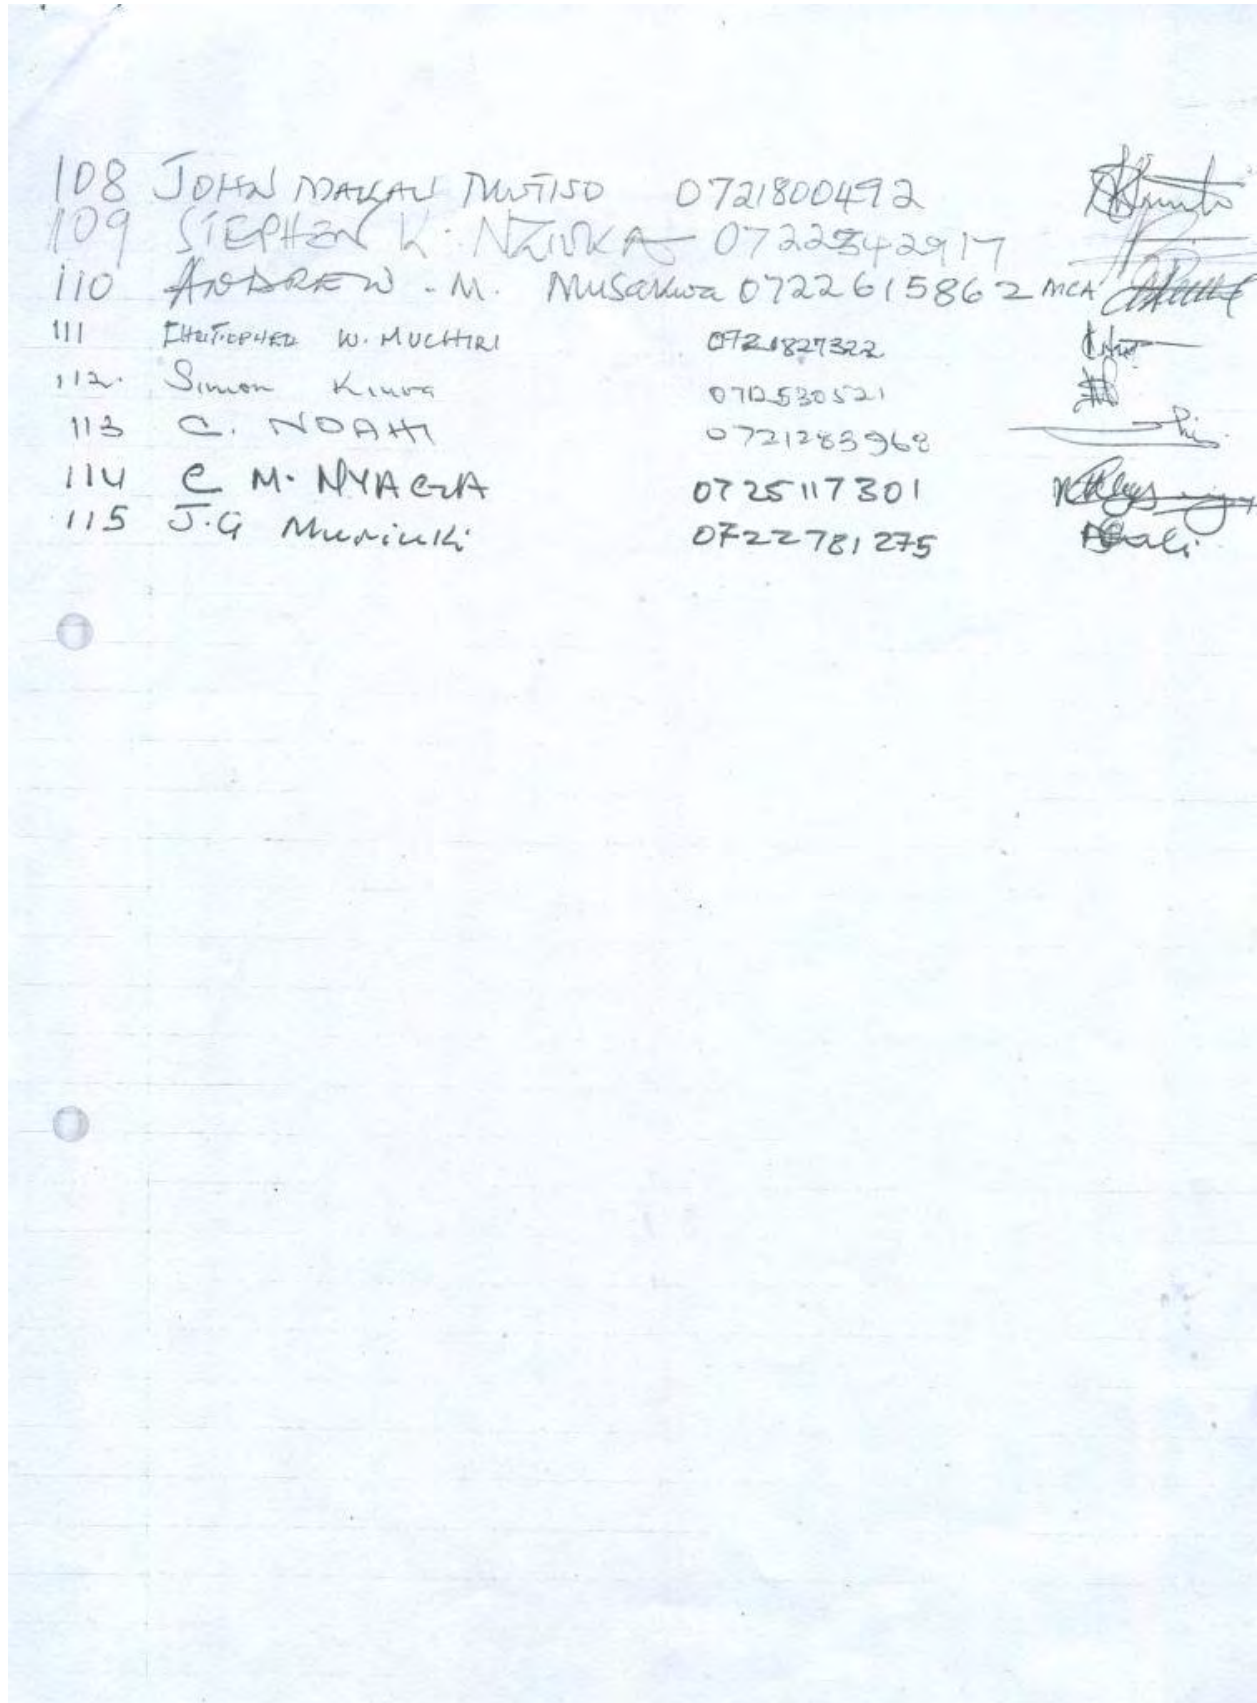 108 JOHN MAKAU MUTISO 0721800492
109 STEPHEN K. NZIUKA 0722342917
110 ANDREW . M. Musakwa 0722615862 MCA
111 W. MUCHIRI 0721827322
112. Simon 0712530521
113 C. NOAH 0721283968
114 C M. NYAGA 0725117301
115 J.G Muriuki 0722781275